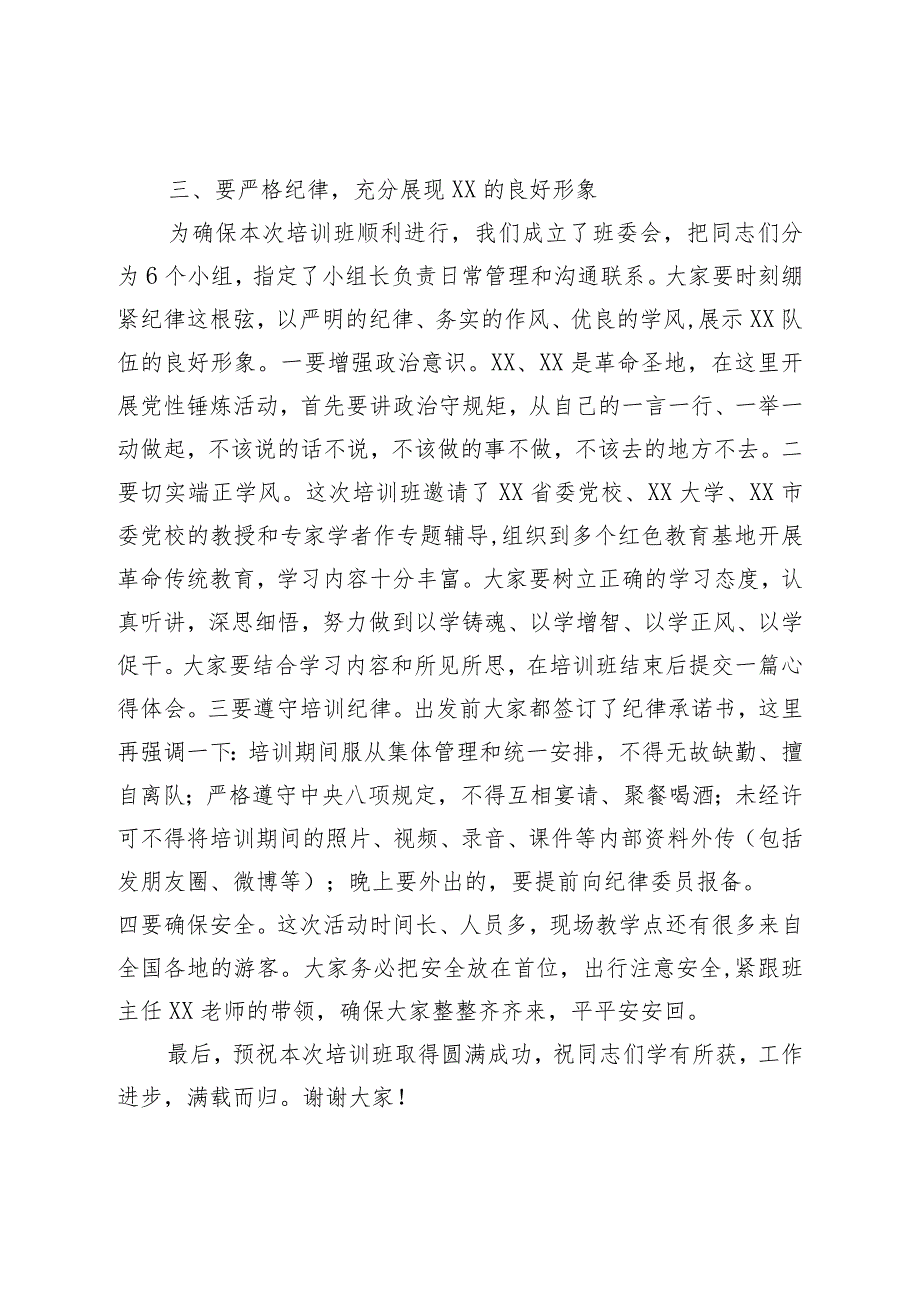 三、要严格纪律，充分展现 XX 的良好形象
为确保本次培训班顺利进行，我们成立了班委会，把同志们分
为 6 个小组，指定了小组长负责日常管理和沟通联系。大家要时刻绷
紧纪律这根弦，以严明的纪律、务实的作风、优良的学风,展示 XX 队
伍的良好形象。一要增强政治意识。XX、XX 是革命圣地，在这里开
展党性锤炼活动，首先要讲政治守规矩，从自己的一言一行、一举一
动做起，不该说的话不说，不该做的事不做，不该去的地方不去。二
要切实端正学风。这次培训班邀请了 XX 省委党校、XX 大学、XX 市
委党校的教授和专家学者作专题辅导,组织到多个红色教育基地开展
革命传统教育，学习内容十分丰富。大家要树立正确的学习态度，认
真听讲，深思细悟，努力做到以学铸魂、以学增智、以学正风、以学
促干。大家要结合学习内容和所见所思，在培训班结束后提交一篇心
得体会。三要遵守培训纪律。出发前大家都签订了纪律承诺书，这里
再强调一下：培训期间服从集体管理和统一安排，不得无故缺勤、擅
自离队；严格遵守中央八项规定，不得互相宴请、聚餐喝酒；未经许
可不得将培训期间的照片、视频、录音、课件等内部资料外传（包括
发朋友圈、微博等）；晚上要外出的，要提前向纪律委员报备。
四要确保安全。这次活动时间长、人员多，现场教学点还有很多来自
全国各地的游客。大家务必把安全放在首位，出行注意安全,紧跟班
主任 XX 老师的带领，确保大家整整齐齐来，平平安安回。
最后，预祝本次培训班取得圆满成功，祝同志们学有所获，工作
进步，满载而归。谢谢大家！